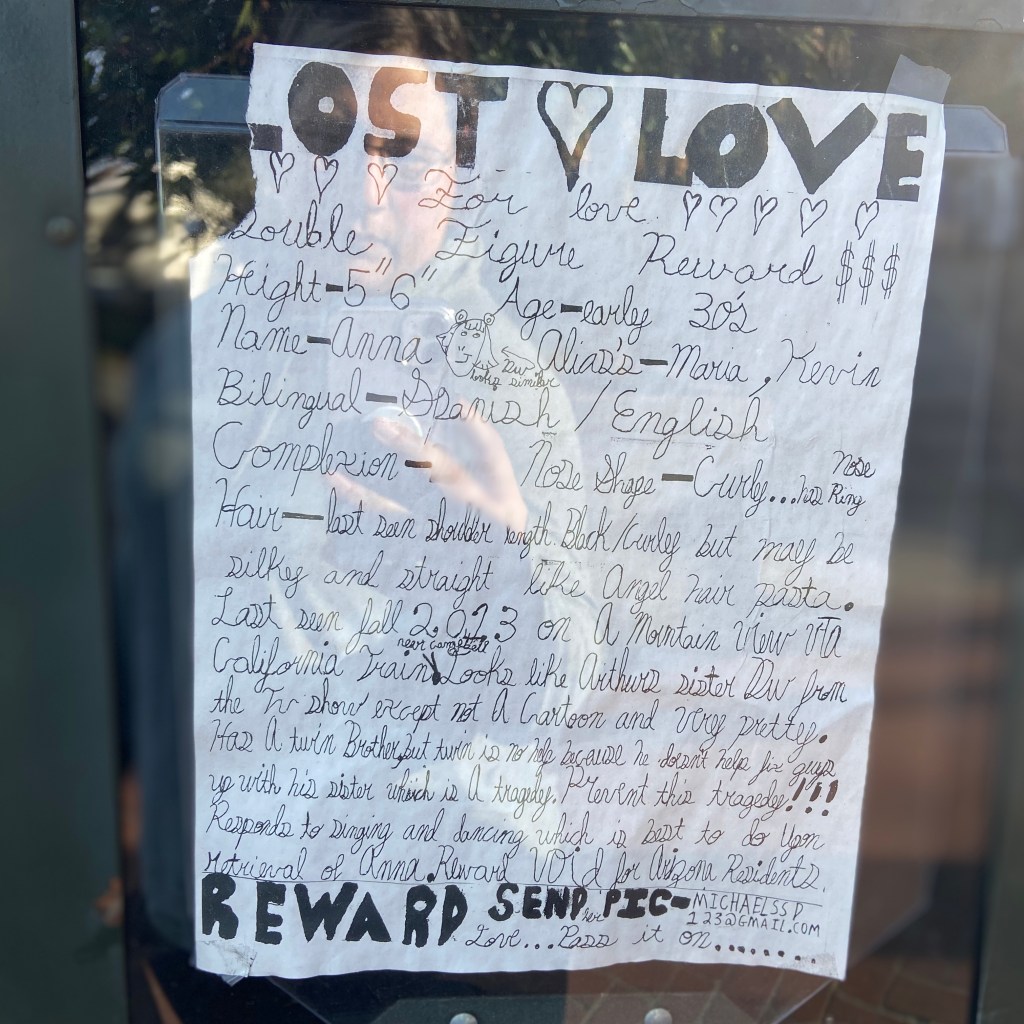 LOST LOVE
For love
Double Figure Reward $$$
Height-5"6" Age-early 30's
Name-Anna Alias's-Maria, Kevin
DW looks similar
Bilingual-Spanish / English
Complexion- Nose Shape-Curly...has Nose Ring
Hair-last seen shoulder length. Black/Curly but may be
silky and straight like Angel hair pasta.
Last seen fall 2023 on A Mountain View VTA
near campbell
California Train. Looks like Arthurs sister DW from
the Tv show except not A Cartoon and very pretty.
Has A twin Brother, but twin is no help because he doesn't help fix guys
up with his sister which is A tragedy. Prevent this tragedy!!!
Responds to singing and dancing which is best to do Upon
retrieval of Anna. Reward VOid for Arizona Residents.
REWARD SEND her PIC-MICHAELSSD
123@GMAIL.COM
Love...Pass it on........